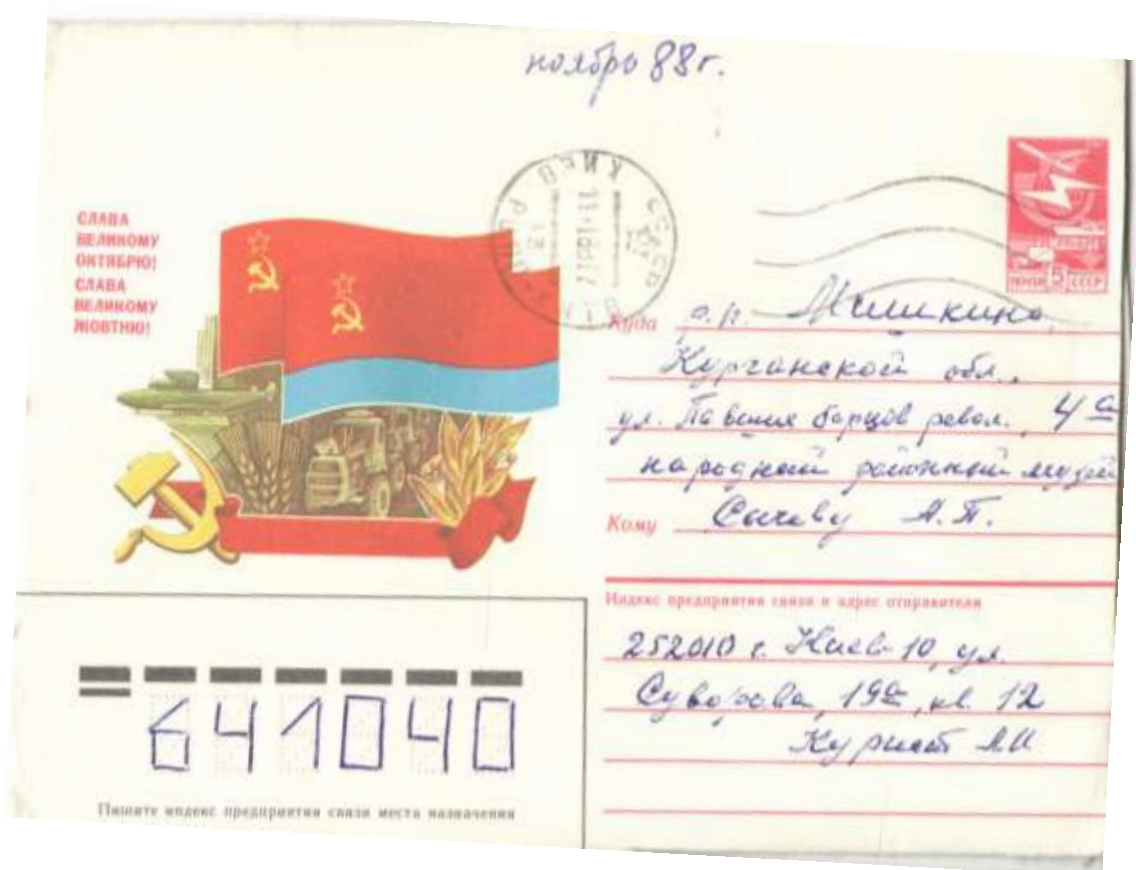 ноябрь 88г.
СЛАВА
ВЕЛИКОМУ
ОКТЯБРЮ!
СЛАВА
ВЕЛИКОМУ
ЖОВТНЮ!
КИЕВ
ПОЧТА 5 СССР
Куда р.п. Мишкино,
Курганской обл.,
ул. Павших борцов револ., 4а
народный районный музей
Кому Сычеву А.П.
Индекс предприятия связи и адрес отправителя
252010 г. Киев-10, ул.
Суворова, 19а, кв. 12
641040
Пишите индекс предприятия связи места назначения